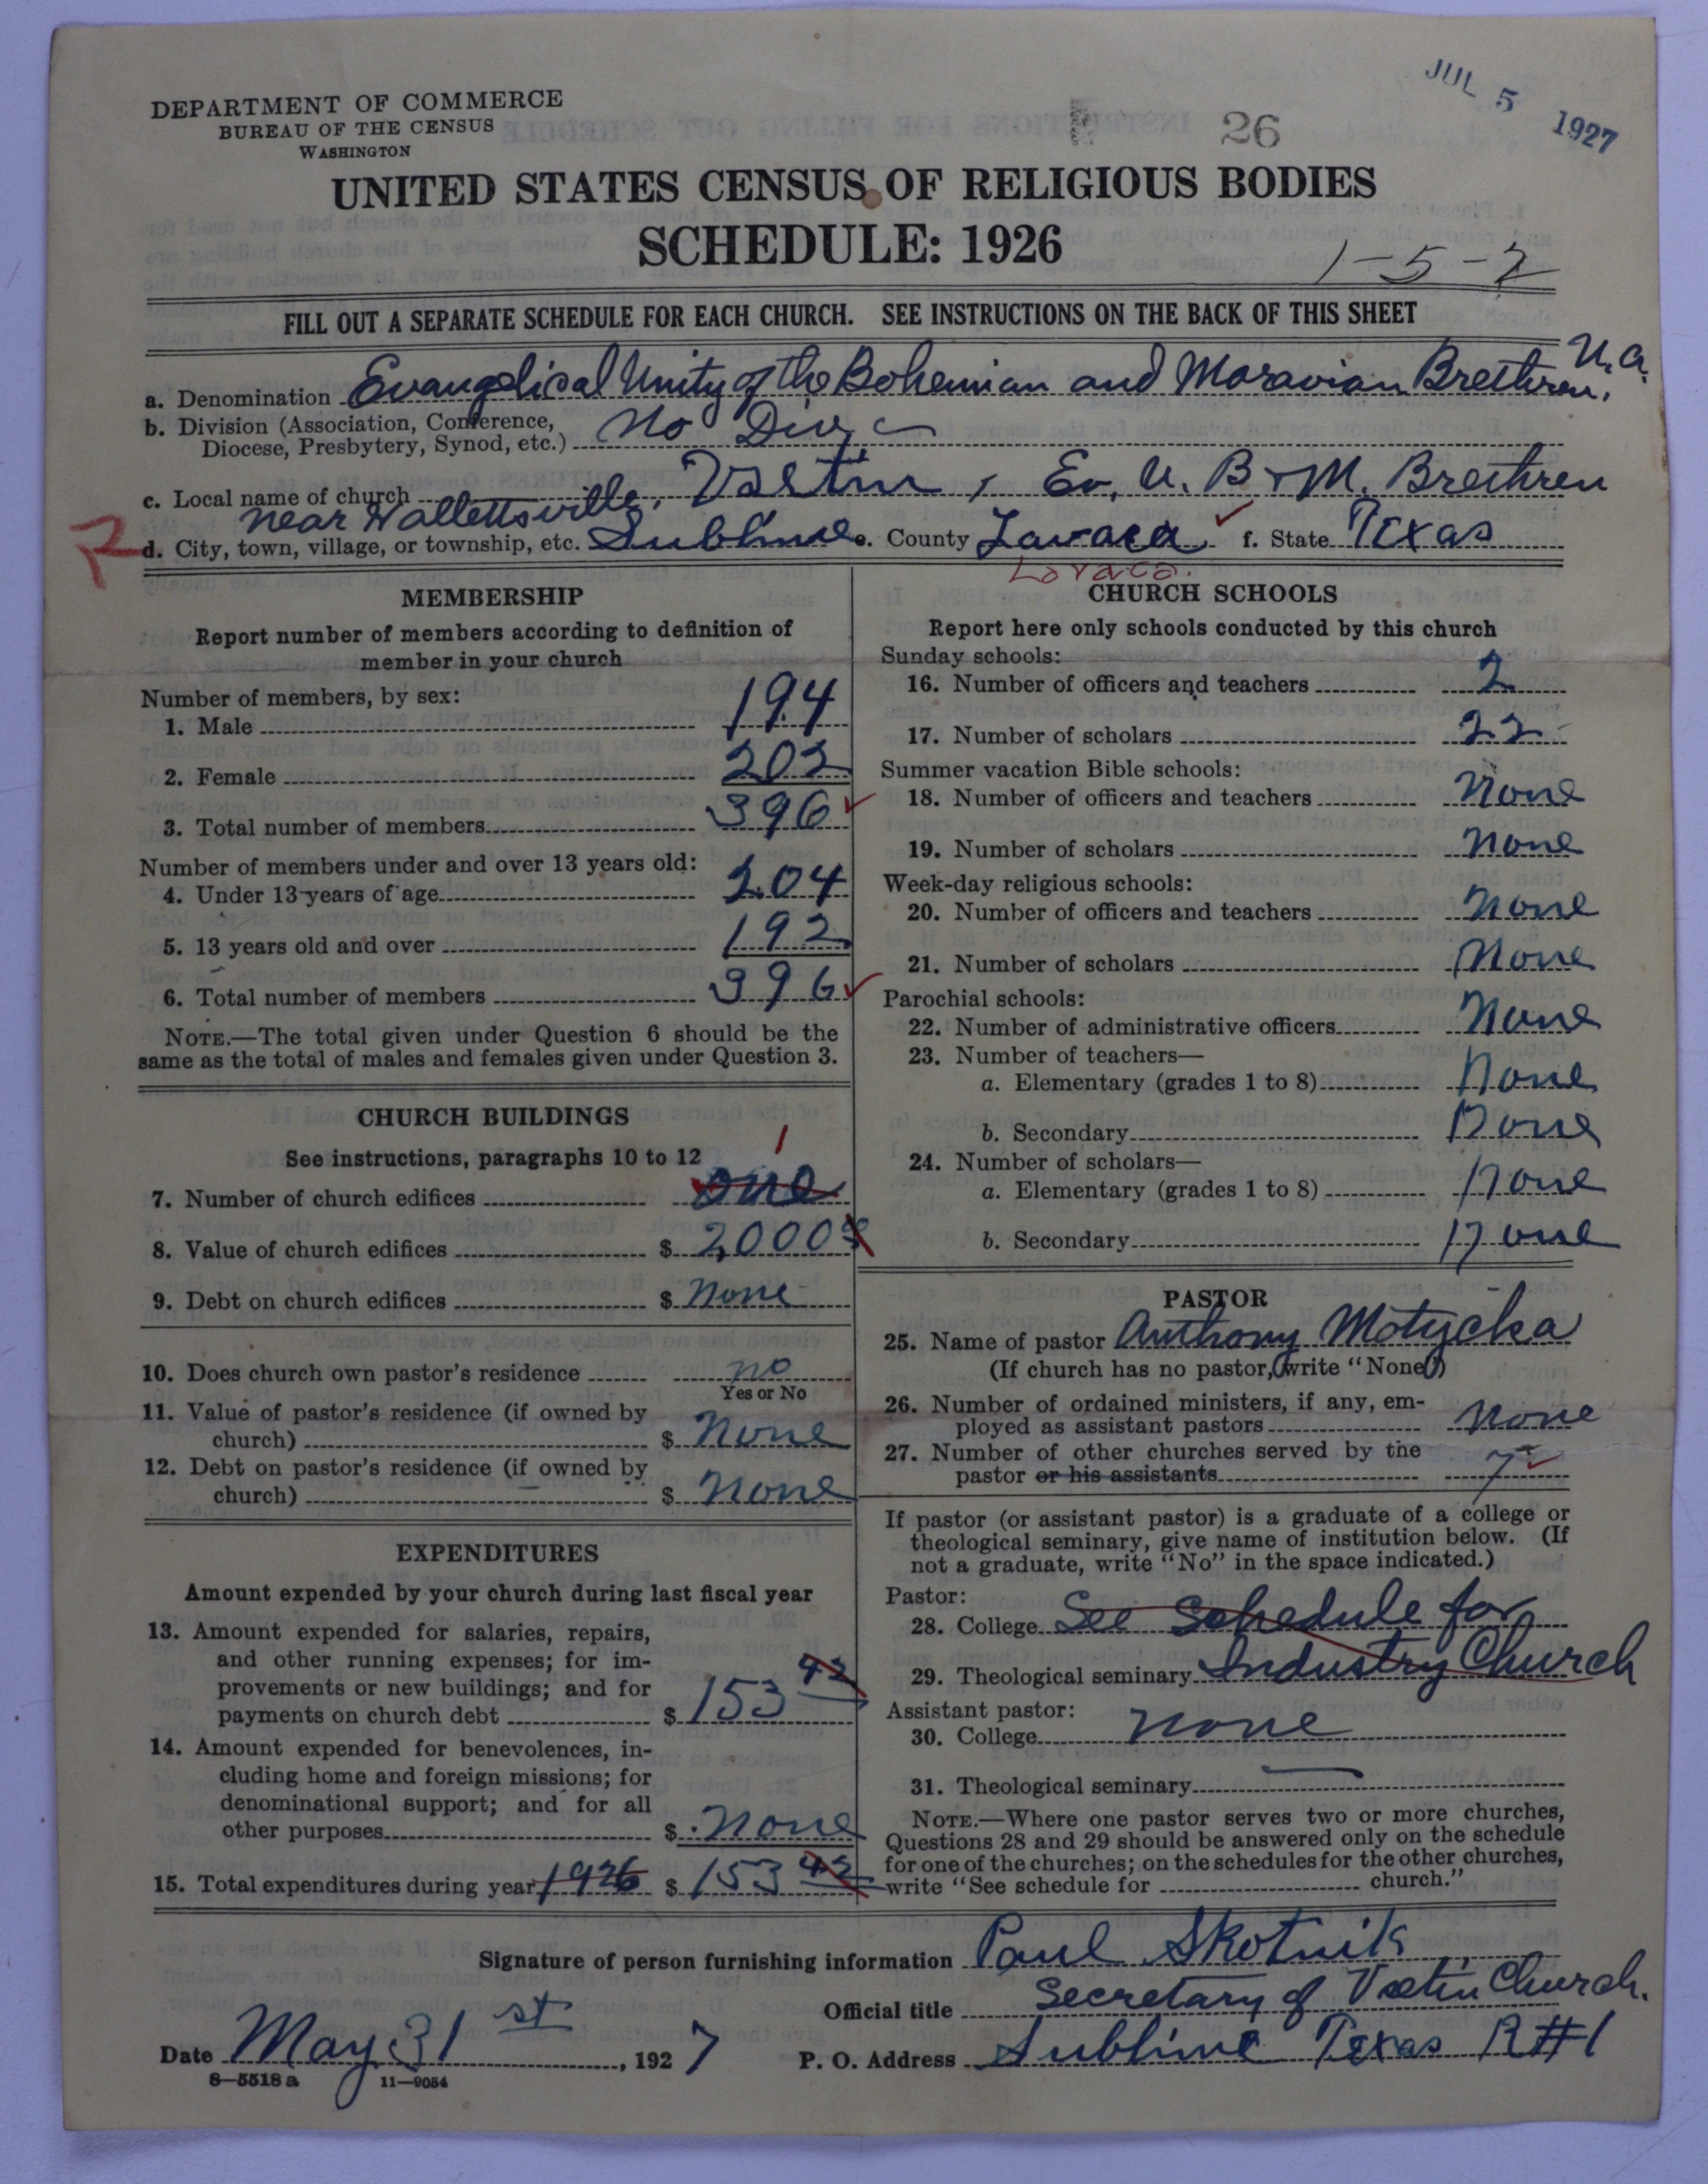 JUL 5 1927
DEPARTMENT OF COMMERCE
BUREAU OF THE CENSUS
WASHINGTON
26
UNITED STATES CENSUS OF RELIGIOUS BODIES
SCHEDULE: 1926
1-5-2
FILL OUT A SEPARATE SCHEDULE FOR EACH CHURCH. SEE INSTRUCTIONS ON THE BACK OF THIS SHEET
a. Denomination Evangelical Unity of the Bohemian and Moravian Brethren, N.A.
b. Division (Association, Conference,
Diocese, Presbytery, Synod, etc.) No Div.
c. Local name of church Vsetin, Ev. U. B & M. Brethren
near Hallettsville,
d. City, town, village, or township, etc. Sublime e. County Lavaca f. State Texas
Lavaca.
MEMBERSHIP
Report number of members according to definition of
member in your church
Number of members, by sex:
1. Male 194
2. Female 202
3. Total number of members 396
Number of members under and over 13 years old:
4. Under 13 years of age 204
5. 13 years old and over 192
6. Total number of members 396
NOTE.—The total given under Question 6 should be the
same as the total of males and females given under Question 3.
CHURCH BUILDINGS
See instructions, paragraphs 10 to 12
1
7. Number of church edifices one
8. Value of church edifices $ 2,000
9. Debt on church edifices $ None
10. Does church own pastor's residence no
Yes or No
11. Value of pastor's residence (if owned by
church) $ None
12. Debt on pastor's residence (if owned by
church) $ None
EXPENDITURES
Amount expended by your church during last fiscal year
13. Amount expended for salaries, repairs,
and other running expenses; for im-
provements or new buildings; and for
payments on church debt $ 153 42
14. Amount expended for benevolences, in-
cluding home and foreign missions; for
denominational support; and for all
other purposes $ None
15. Total expenditures during year 1926 $ 153 42
CHURCH SCHOOLS
Report here only schools conducted by this church
Sunday schools:
16. Number of officers and teachers 2
17. Number of scholars 22
Summer vacation Bible schools:
18. Number of officers and teachers None
19. Number of scholars None
Week-day religious schools:
20. Number of officers and teachers None
21. Number of scholars None
Parochial schools:
22. Number of administrative officers None
23. Number of teachers—
a. Elementary (grades 1 to 8) None
b. Secondary None
24. Number of scholars—
a. Elementary (grades 1 to 8) None
b. Secondary None
PASTOR
25. Name of pastor Anthony Motycka
(If church has no pastor, write "None")
26. Number of ordained ministers, if any, em-
ployed as assistant pastors None
27. Number of other churches served by the
pastor or his assistants 7
If pastor (or assistant pastor) is a graduate of a college or
theological seminary, give name of institution below. (If
not a graduate, write "No" in the space indicated.)
Pastor:
28. College See Schedule for
29. Theological seminary Industry Church
Assistant pastor:
30. College none
31. Theological seminary
NOTE.—Where one pastor serves two or more churches,
Questions 28 and 29 should be answered only on the schedule
for one of the churches; on the schedules for the other churches,
write "See schedule for church."
Signature of person furnishing information Paul Skotnik
Official title Secretary of Vsetin Church.
Date May 31st, 1927 P. O. Address Sublime Texas R#1
8—5518 a 11—9054